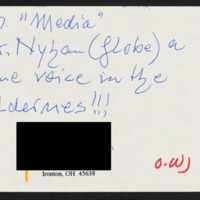 . "Media"
. Nyhan (Globe) a
ne voice in the
ldernes!!!
Ironton, OH 45638
O.W)